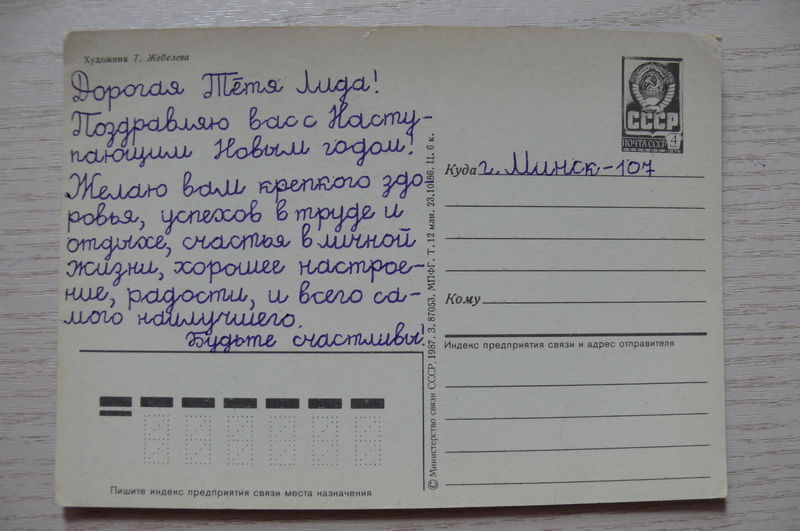 Художник Т. Жебелева
Дорогая Тётя Лида!
Поздравляю вас с Насту-
пающим Новым годом!
Желаю вам крепкого здо-
ровья, успехов в труде и
отдыхе, счастья в личной
жизни, хорошее настрое-
ние, радости, и всего са-
мого наилучшего.
Будьте счастливы.
Пишите индекс предприятия связи места назначения
© Министерство связи СССР, 1987. З. 87053. МПФГ. Т. 12 млн. 23.10.86. Ц. 6 к.
СССР
ПОЧТА СССР
4
Куда г. Минск-107
Кому
Индекс предприятия связи и адрес отправителя